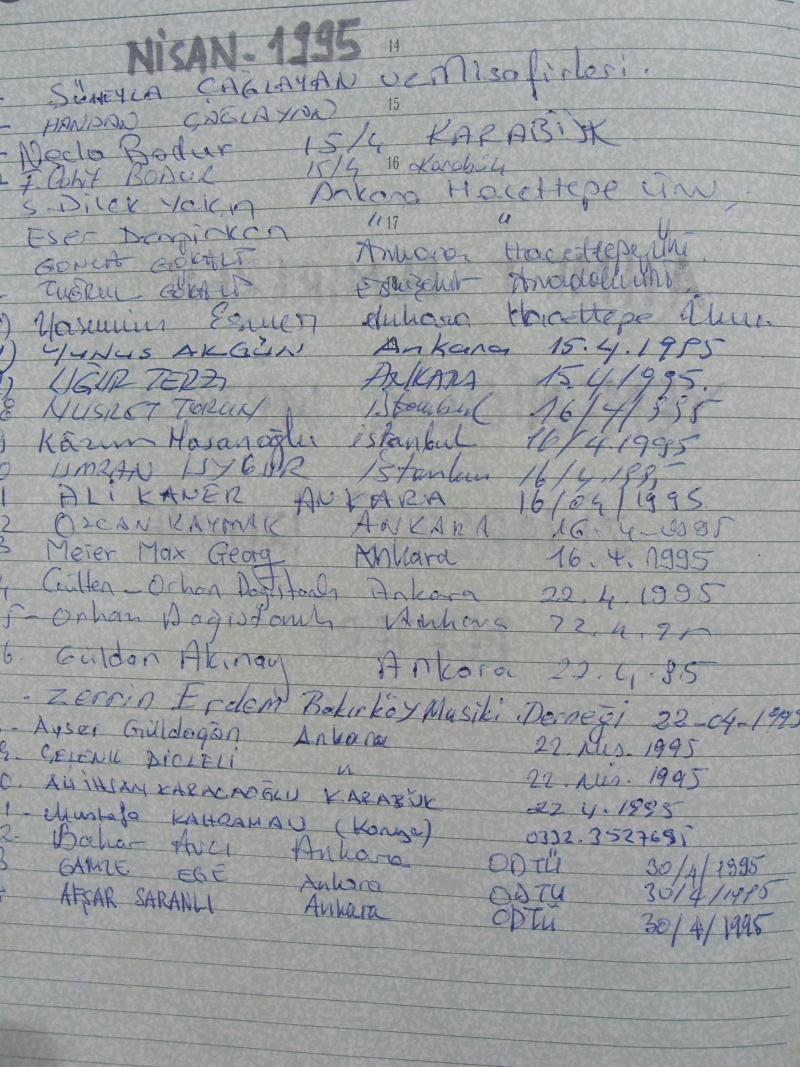 NİSAN-1995 14
- SÜHEYLA ÇAĞLAYAN ve Misafirleri.
- HANDAN ÇAĞLAYAN 15
- Necla Bodur 15/4 KARABÜK
BODUR 15/4 16 Karabük
S. Dilek Yakın Ankara Hacettepe Üni.
Eser " 17 "
GONCA GÖKALP Ankara Hacettepe Üni.
TUĞRUL GÖKALP Eskişehir Anadolu Üni.
) Yasemin Esmen Ankara Hacettepe Üni.
) YUNUS AKGÜN Ankara 15.4.1995
) UĞUR TERZİ ANKARA 15.4/1995.
8 NUSRET TORUN İstanbul 16/4/995
9 Kâzım Hasanoğlu istanbul 16/4.1995
0 ÜMRAN UYGUR İstanbul 16/4.1995
1 ALİ KANER ANKARA 16/04/1995
2 ÖZCAN KAYMAK ANKARA 16.4.1995
3 Meier Max Georg Ankara 16.4.1995
4 Gülten-Orhan Dağıstanlı Ankara 22.4.1995
5- Orhan Dağıstanlı Ankara 22.4.95
6. Güldan Akınay Ankara 22.4.95
- Zerrin Erdem Bakırköy Musiki Derneği 22-04-1995
- Ayser Güldoğan Ankara 22.Nis.1995
9. ÇELENK DİCLELİ " 22.Nis.1995
0. ALİ İHSAN KARACAOĞLU KARABÜK 22 4.1995
1- Mustafa KAHRAMAN (Konya) 0332.3527695
2- Bahar AVCI Ankara ODTÜ 30/4/1995
3 GAMZE EGE Ankara ODTÜ 30/4/1995
AFŞAR SARANLI Ankara ODTÜ 30/4/1995